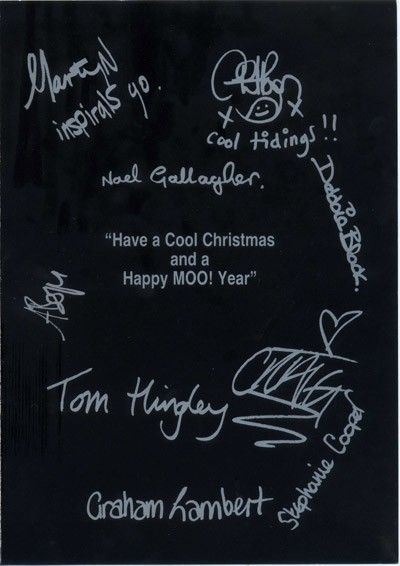 Martyn
inspirals yo.
x x
cool tidings!!
Noel Gallagher.
Debbie Black.
"Have a Cool Christmas
and a
Happy MOO! Year"
Tom Hingley
Stephanie Cooper
Graham Lambert